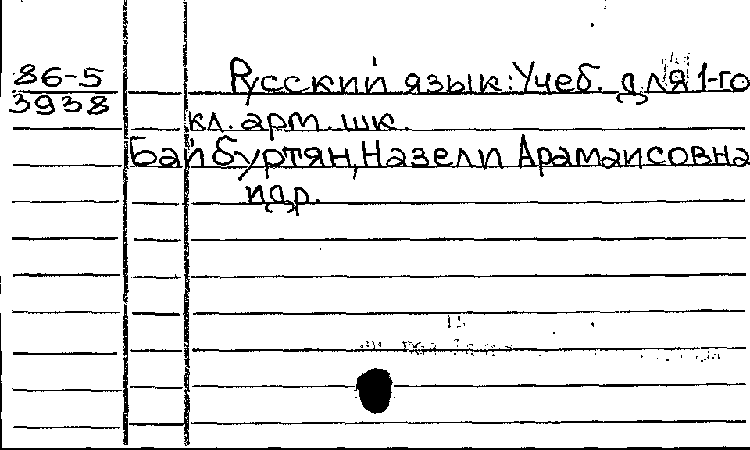 86-5
3938
Русский язык: Учеб. для 1-го
кл. арм. шк.
Байбуртян, Назели Арамаисовна
и др.